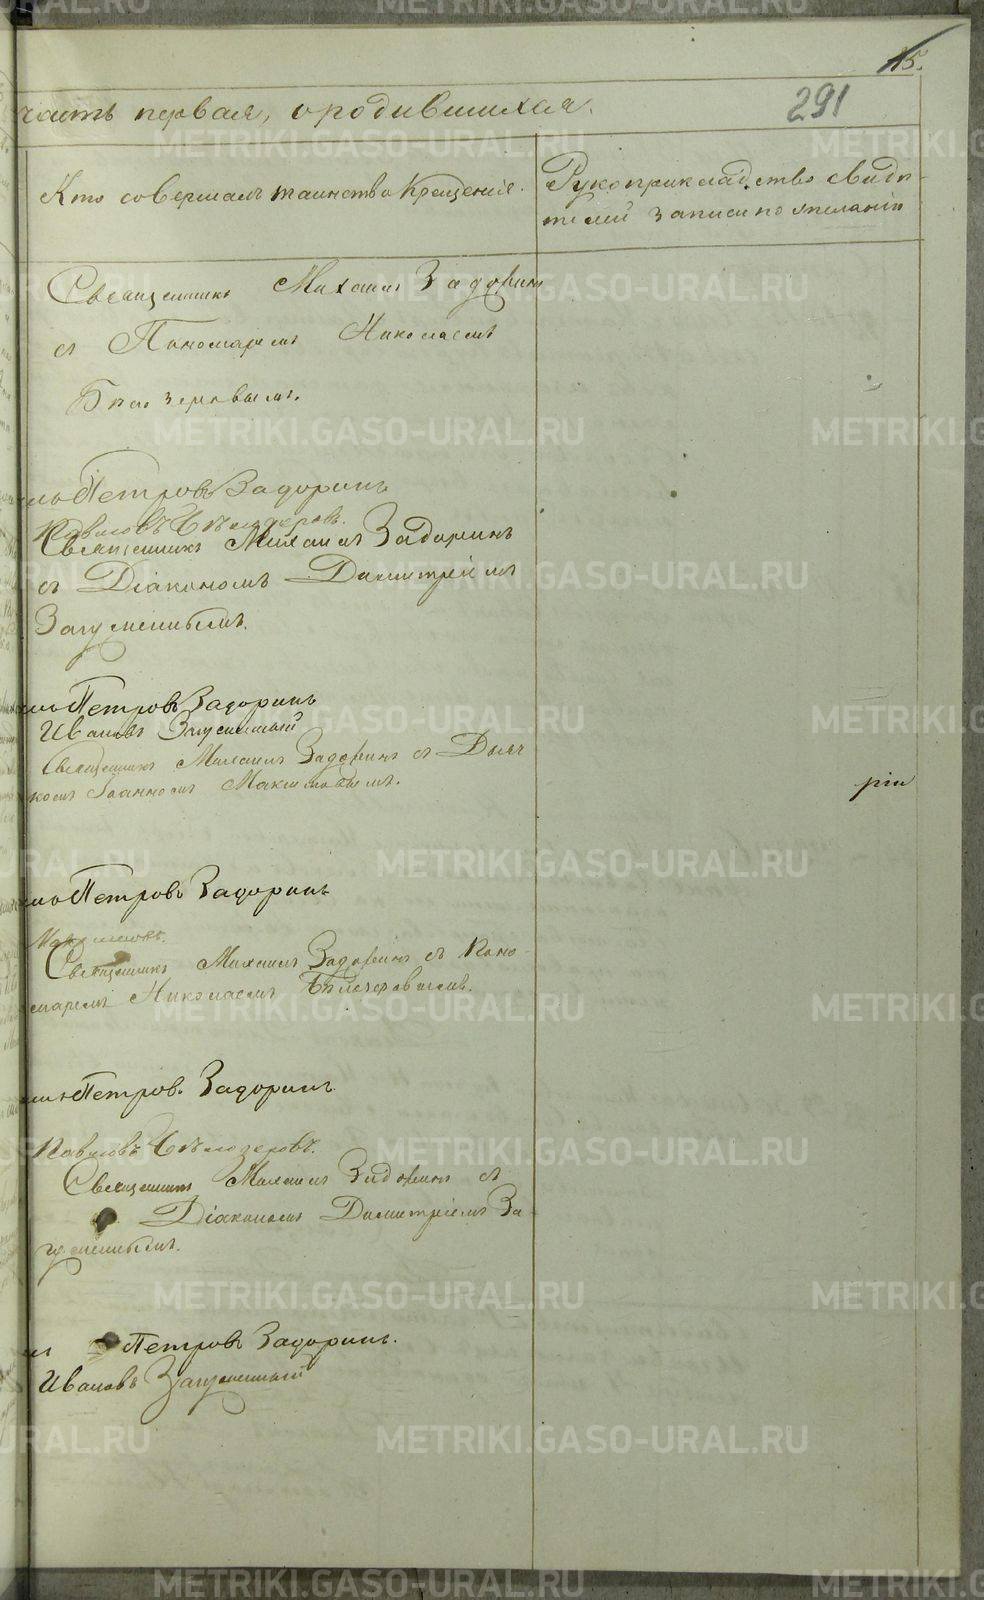 15.
291
часть первая, о родившихся.
Кто совершалъ таинство крещенія.
Рукоприкладство свидѣ-
телей записи по желанію
Священникъ Михаилъ Задоринъ
съ Пономаремъ Николаемъ
Бѣлозеровымъ.
Петровъ Задоринъ
Павловъ Бѣлозеровъ.
Священникъ Михаилъ Задоринъ
съ Діакономъ Димитріемъ
Загуменнымъ.
Петровъ Задоринъ
Ивановъ Загуменный
Священникъ Михаилъ Задоринъ съ Дьяч
комъ Іоанномъ
рія
Петровъ Задоринъ
Священникъ Михаилъ Задоринъ съ Поно-
маремъ Николаемъ Бѣлозеровымъ.
Петров. Задоринъ
Павловъ Бѣлозеровъ.
Священникъ Михаилъ Задоринъ съ
Діакономъ Димитріемъ За-
гуменнымъ.
Петровъ Задоринъ.
Ивановъ Загуменный
METRIKI.GASO-URAL.RU